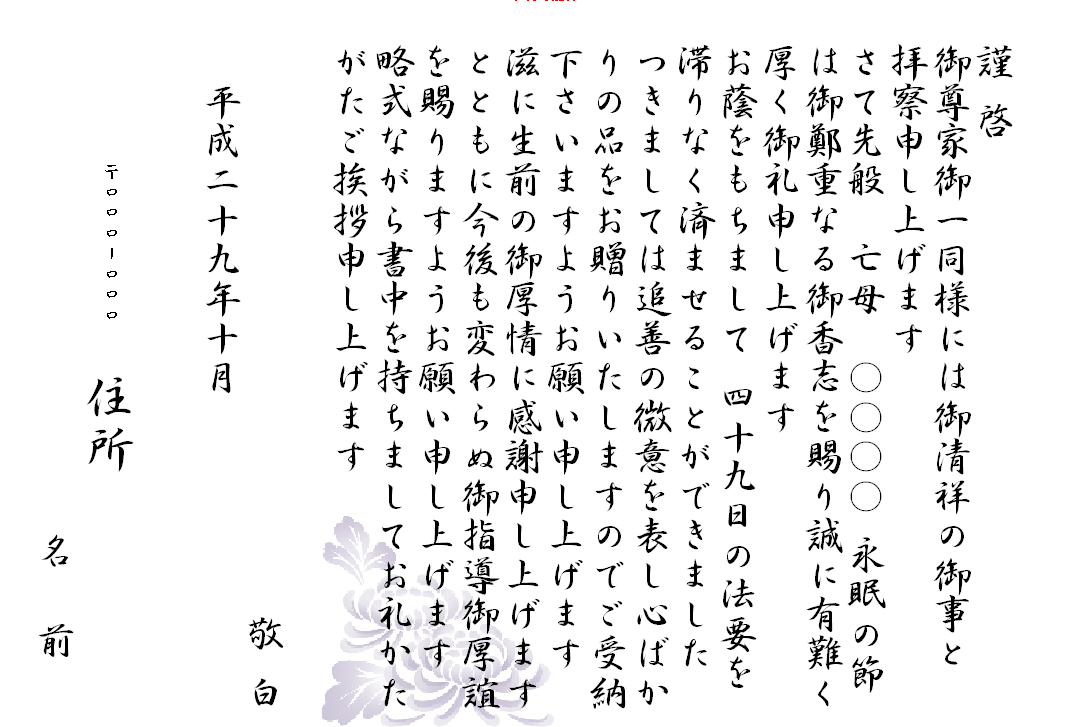 謹啓
御尊家御一同様には御清祥の御事と
拝察申し上げます
さて先般 亡母 〇〇〇〇 永眠の節
は御鄭重なる御香志を賜り誠に有難く
厚く御礼申し上げます
お蔭をもちまして 四十九日の法要を
滞りなく済ませることができました
つきましては追善の微意を表し心ばか
りの品をお贈りいたしますのでご受納
下さいますようお願い申し上げます
滋に生前の御厚情に感謝申し上げます
とともに今後も変わらぬ御指導御厚誼
を賜りますようお願い申し上げます
略式ながら書中を持ちましてお礼かた
がたご挨拶申し上げます
敬白
平成二十九年十月
〒000-000
住所
名前